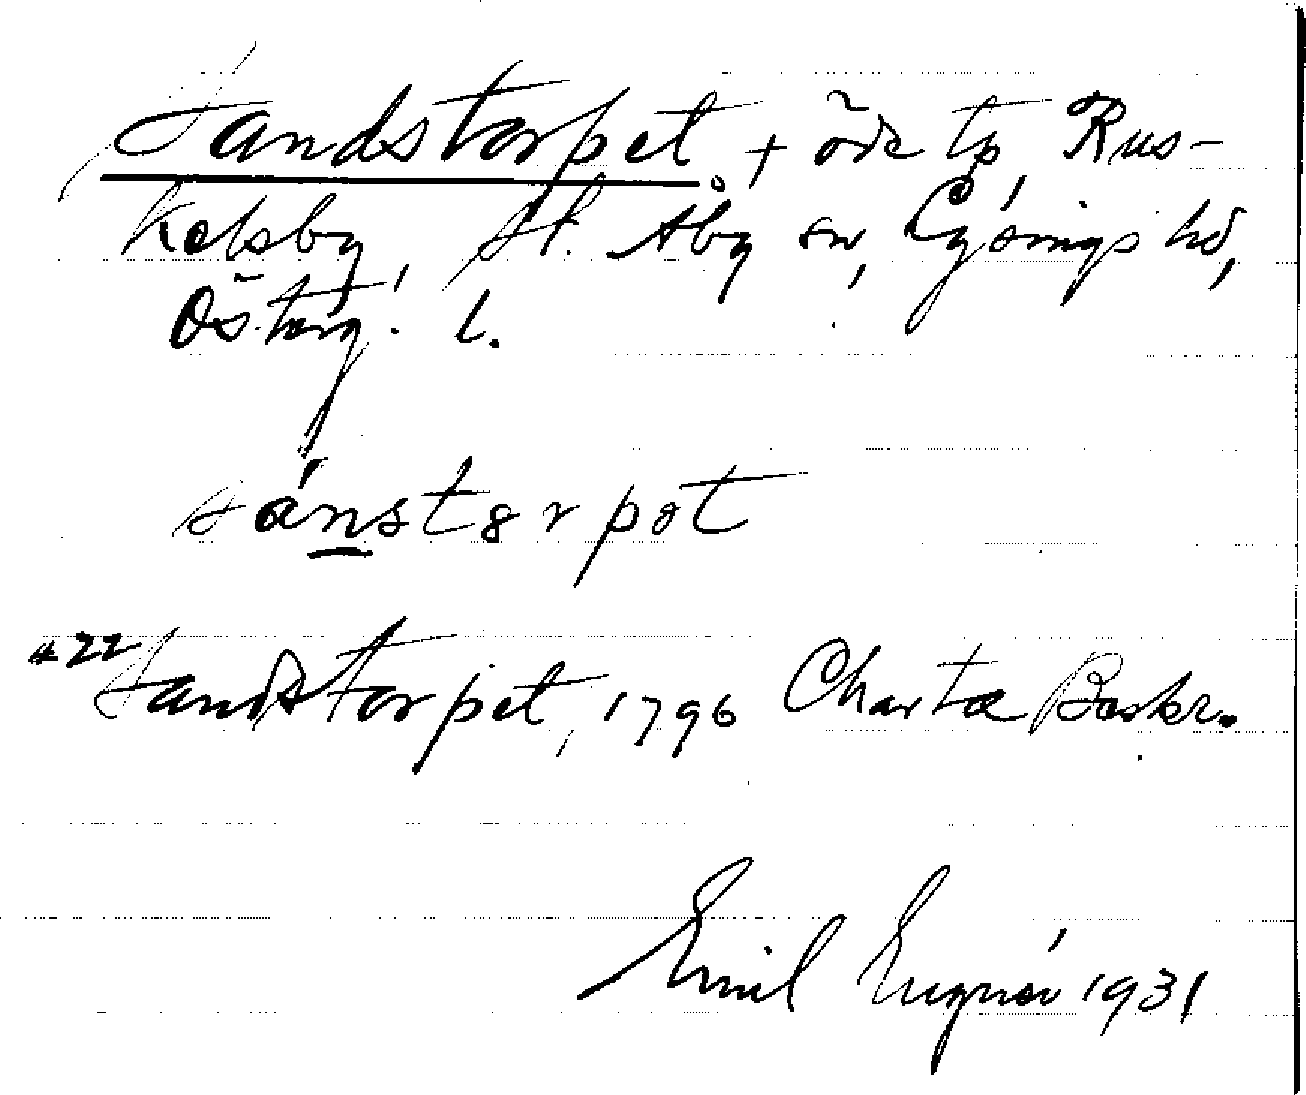 Sandstorpet + öde tp Rus-
kelsby, St. Åby sn, Lysings hd,
Österg. l.
sánstørpət
422 Sandstorpet, 1796 Charta Beskr.
Emil 1931